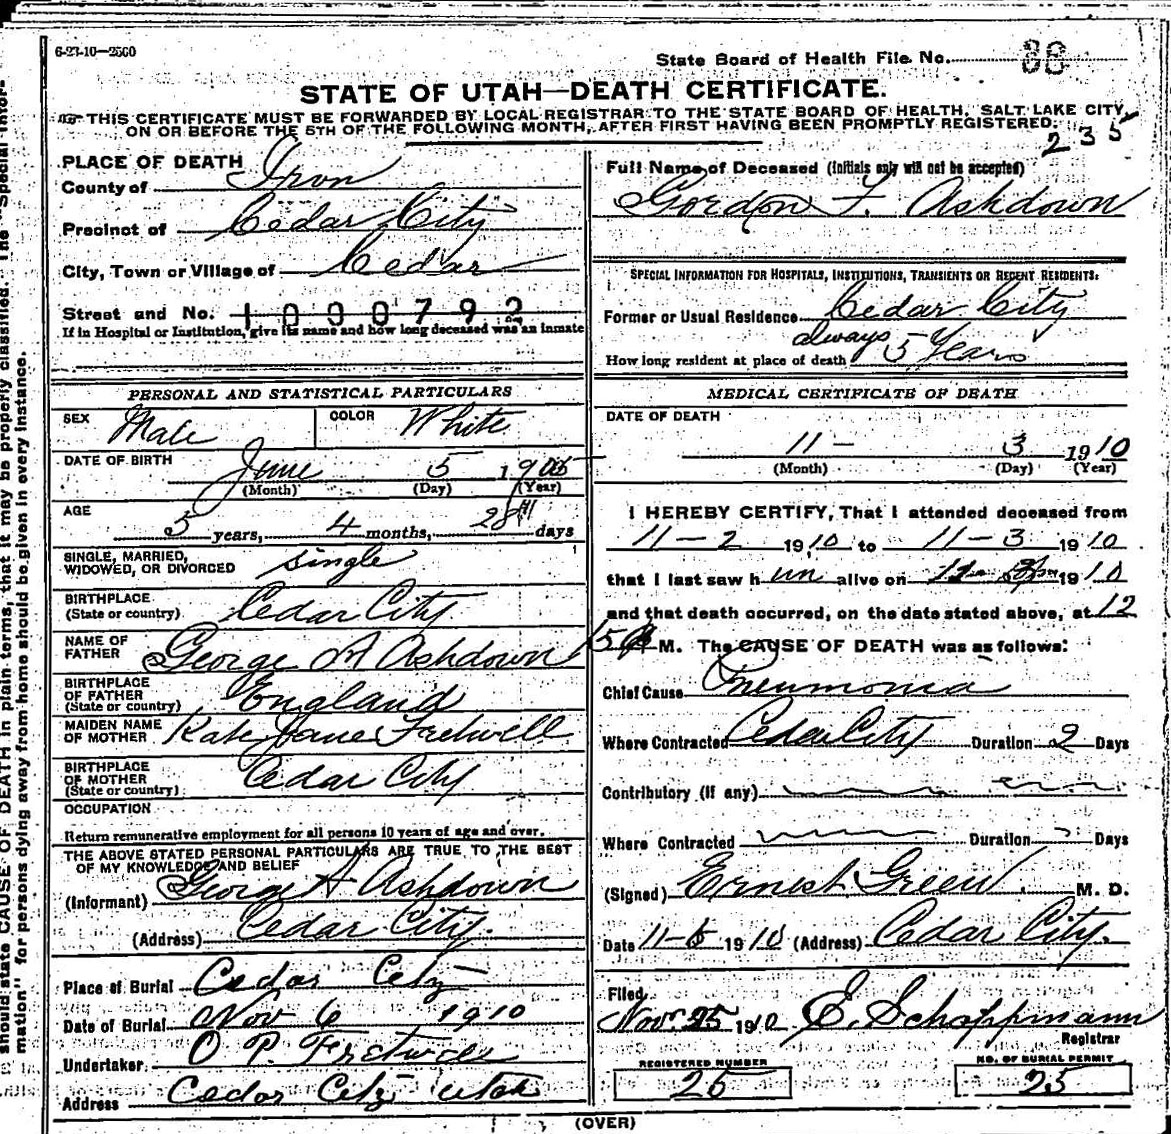 6-23-10-2500
State Board of Health File No. 88
STATE OF UTAH—DEATH CERTIFICATE.
THIS CERTIFICATE MUST BE FORWARDED BY LOCAL REGISTRAR TO THE STATE BOARD OF HEALTH, SALT LAKE CITY,
ON OR BEFORE THE 5TH OF THE FOLLOWING MONTH, AFTER FIRST HAVING BEEN PROMPTLY REGISTERED.
235
PLACE OF DEATH
County of Iron
Precinct of Cedar City
City, Town or Village of Cedar
Street and No. 1000792
If in Hospital or Institution, give its name and how long deceased was an inmate
PERSONAL AND STATISTICAL PARTICULARS
SEX Male COLOR White
DATE OF BIRTH June 5 1905
(Month) (Day) (Year)
AGE 5 years, 4 months, 28 days
SINGLE, MARRIED,
WIDOWED, OR DIVORCED single
BIRTHPLACE
(State or country) Cedar City
NAME OF
FATHER George A Ashdown
BIRTHPLACE
OF FATHER
(State or country) England
MAIDEN NAME
OF MOTHER Kate Jane Fretwell
BIRTHPLACE
OF MOTHER
(State or country) Cedar City
OCCUPATION
Return remunerative employment for all persons 10 years of age and over.
THE ABOVE STATED PERSONAL PARTICULARS ARE TRUE TO THE BEST
OF MY KNOWLEDGE AND BELIEF
(Informant) George A Ashdown
(Address) Cedar City.
Place of Burial Cedar City
Date of Burial Nov 6 1910
Undertaker O P. Fretwell
Address Cedar City Utah
Full Name of Deceased (Initials only will not be accepted)
Gordon F. Ashdown
SPECIAL INFORMATION FOR HOSPITALS, INSTITUTIONS, TRANSIENTS OR RECENT RESIDENTS:
Former or Usual Residence Cedar City
always
How long resident at place of death 5 Years
MEDICAL CERTIFICATE OF DEATH
DATE OF DEATH
11 - 3 1910
(Month) (Day) (Year)
I HEREBY CERTIFY, That I attended deceased from
11-2 1910 to 11-3 1910
that I last saw him alive on 1910
and that death occurred, on the date stated above, at 12
15 M. The CAUSE OF DEATH was as follows:
Chief Cause Pneumonia
Where Contracted Cedar City Duration 2 Days
Contributory (if any)
Where Contracted Duration Days
(Signed) Ernest Green. M. D.
Date 11-5 1910 (Address) Cedar City.
Filed
Nov 25 1910 E. Schoppmann
Registrar
REGISTERED NUMBER NO. OF BURIAL PERMIT
25 25
(OVER)
should state CAUSE OF DEATH in plain terms, that it may be properly classified. The "Special Infor-
mation" for persons dying away from home should be given in every instance.